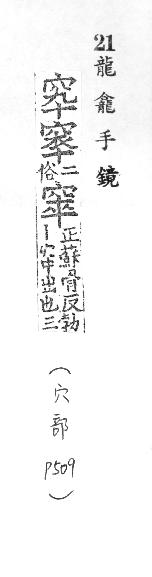 21 龍龕手鏡
二俗窣正蘇骨反勃
丨穴中出也三
(穴部 P509)